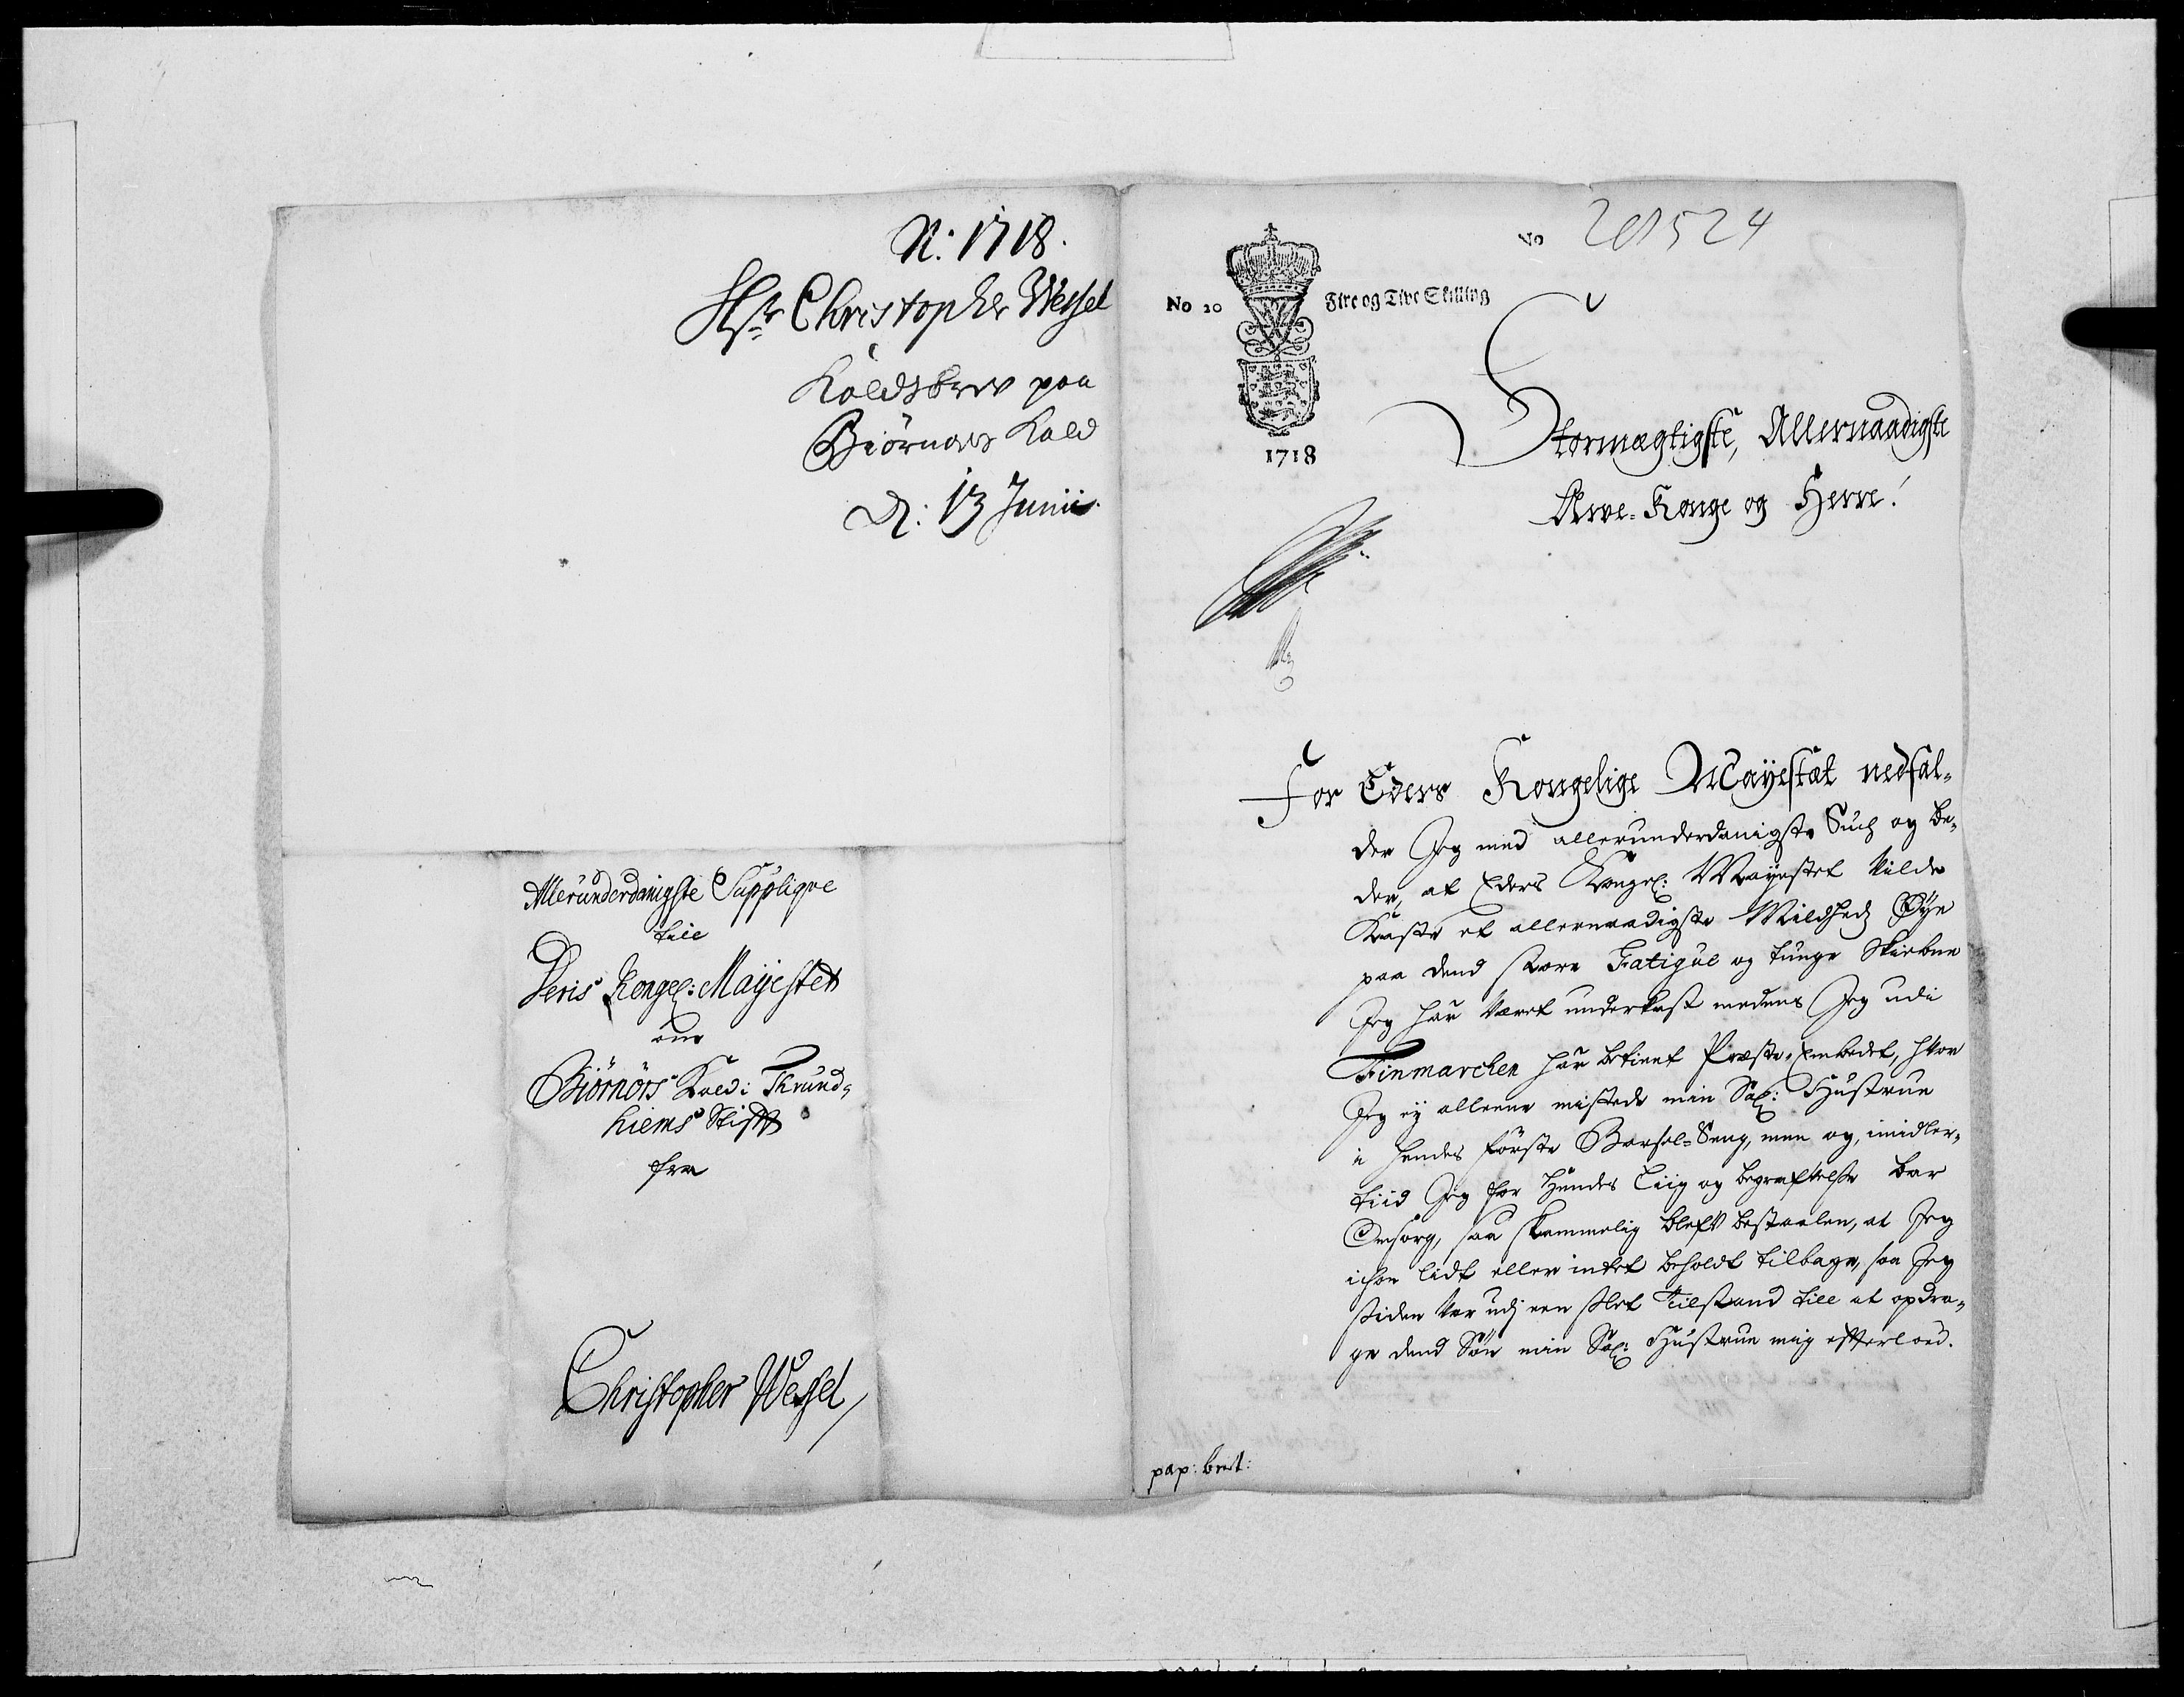 N: 1718.
Hr Christopher Wessel
Kaldsbrev paa
Biörnørs Kald
D: 13 Junii.
Allerunderdanigste Supplique
till
Deris Kongel: Mayestet
om
Biörnörs Kald i Thrund-
hiems Stifft
fra
Christopher Wessel
No 20
Fire og Tive Skilling
1718
No 201524
Stormægtigste, Allernaadigste
Arve-Konge og Herre!
For Eders Kongelige Mayestæt nedfal-
der Jeg med allerunderdanigste Such og be-
der, at Eders Kongel: Mayestet Vilde
Kaste et allernaadigste Mildheds Øye
paa dend store Fatigue og tunge Skiebne
Jeg har været underkast medens Jeg udi
Finmarchen har betient Præste-Embedet, hvor
Jeg ey alleene mistede min Sal: Hustrue
i hendes förste Barsel-Seng, men og, imidler-
tiid Jeg for Hendes Liig og begraffvelse bar
Omsorg, saa skammelig bleff bestaalen, at Jeg
ichon lidt eller intet beholdt tilbage, saa Jeg
siden var udj een slet Tilstand till at opdra-
ge dend Sön min Sal: Hustrue mig efterloed.
pap: bret: